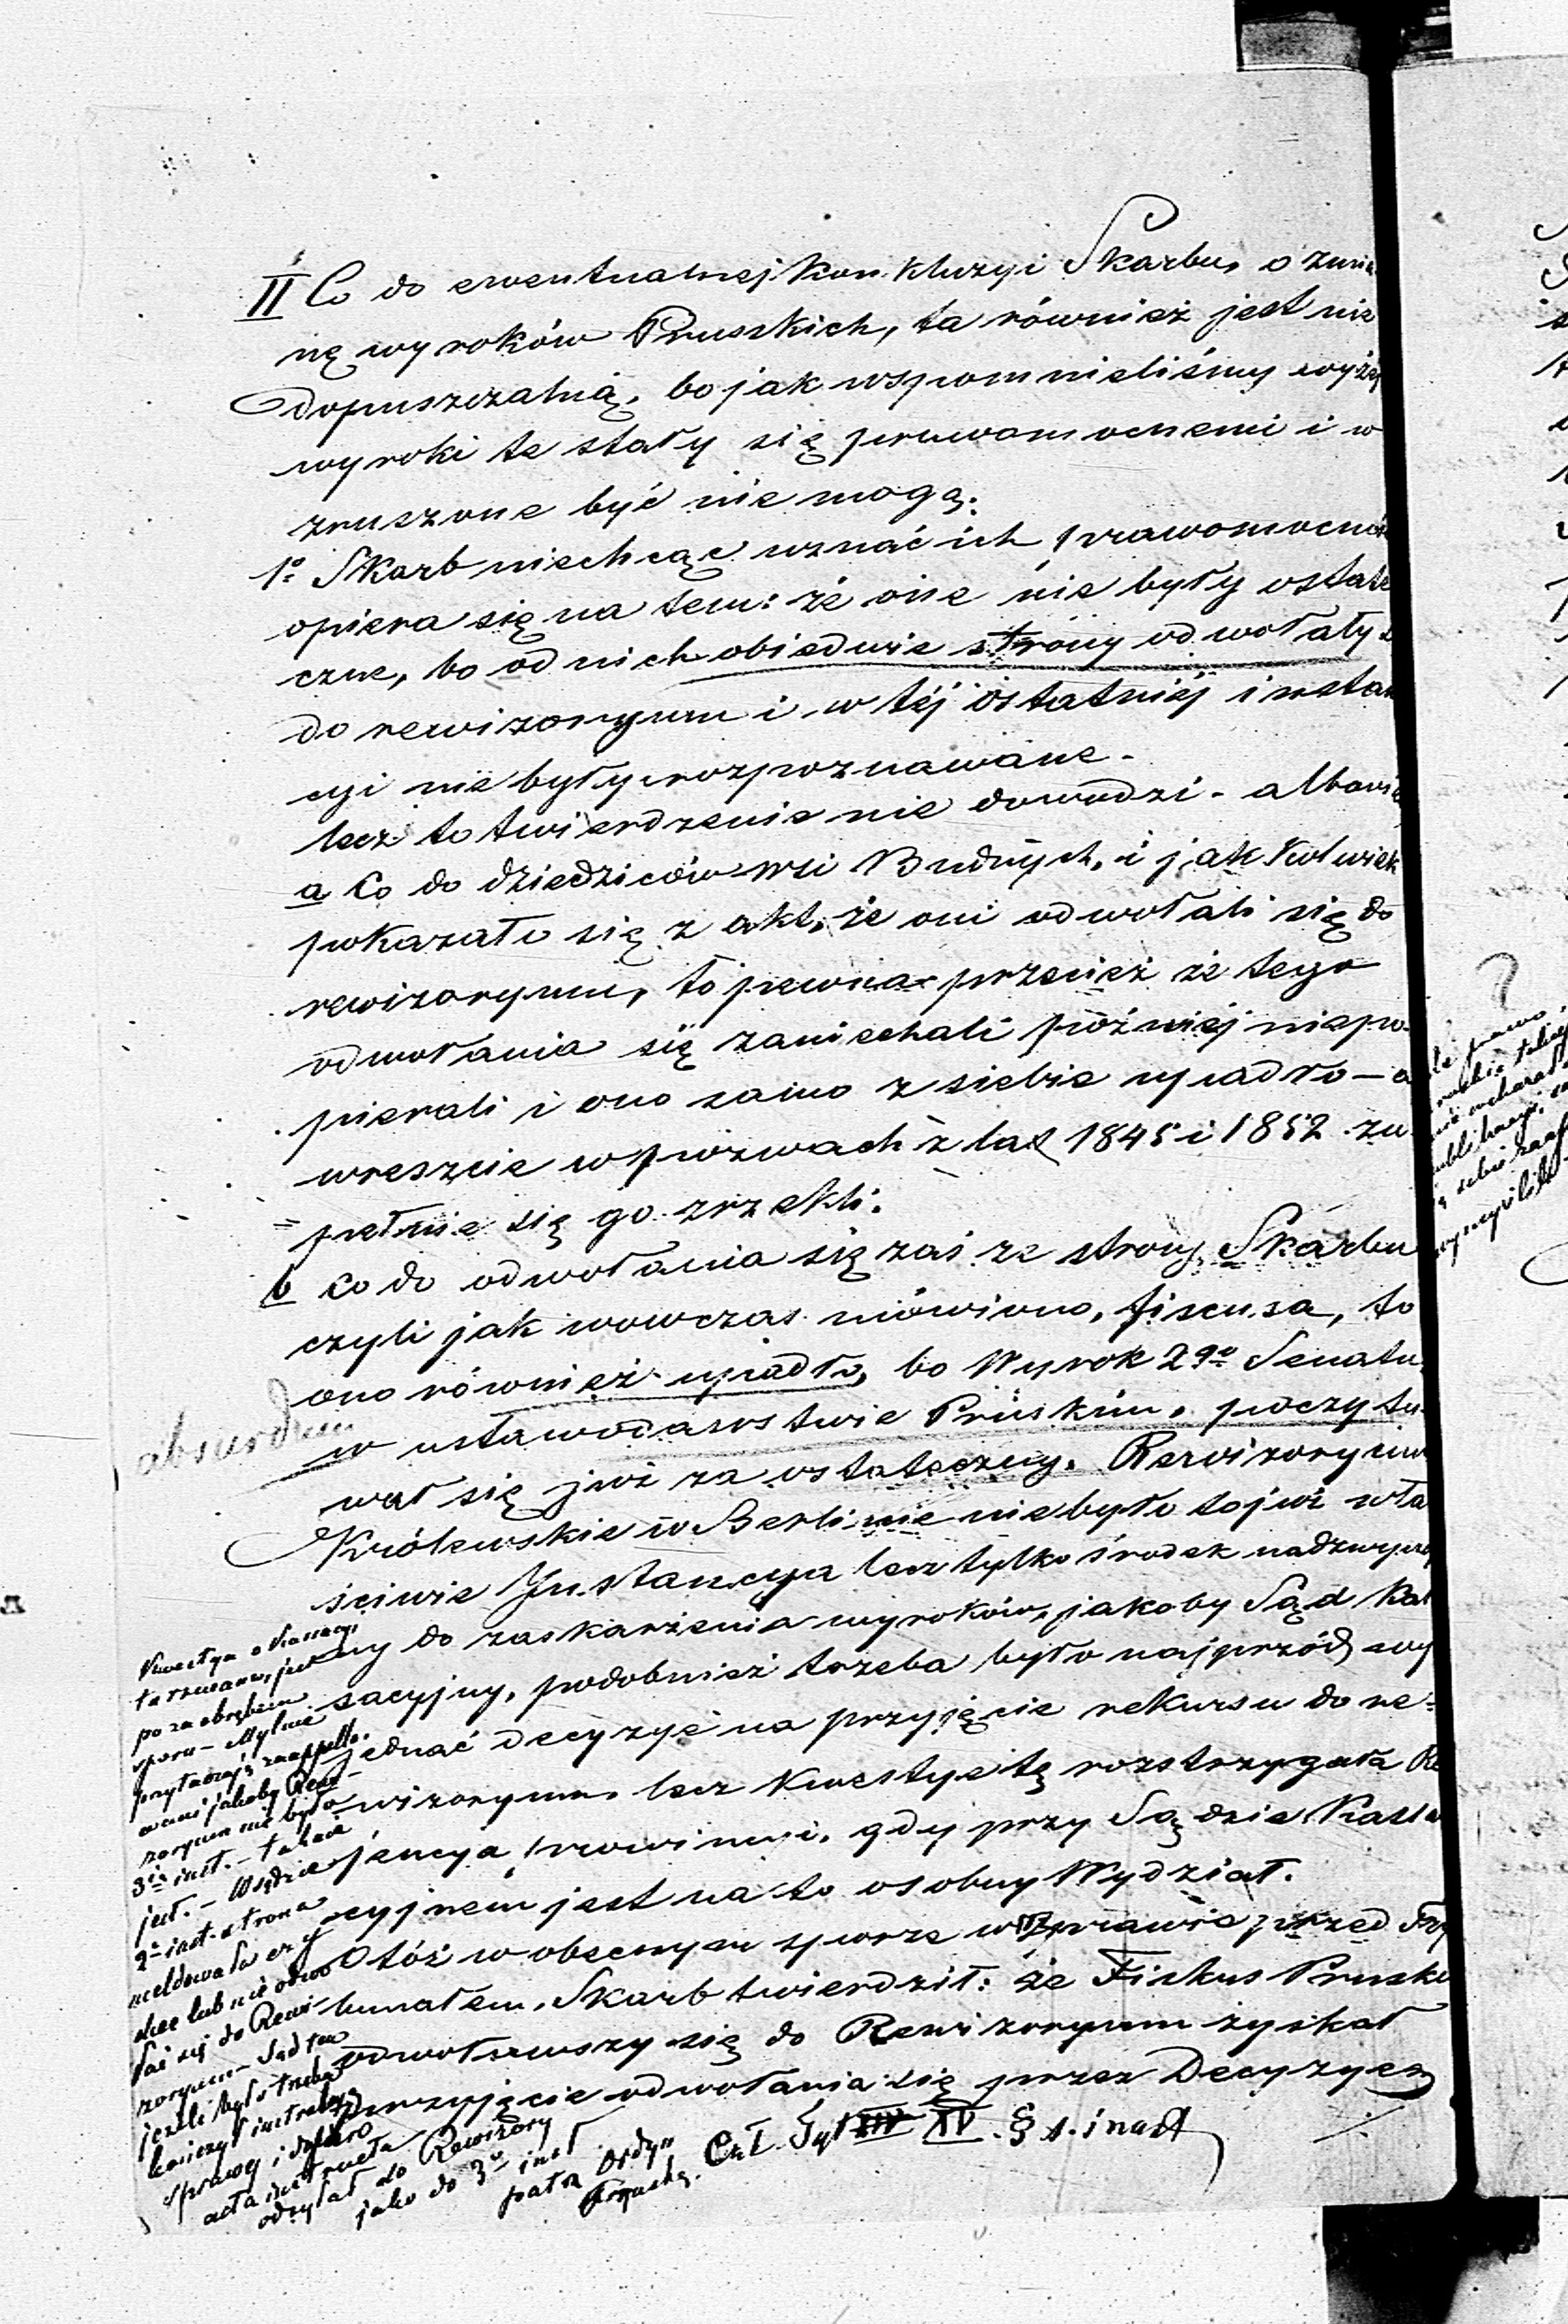 II Co do ewentualnej Konkluzyi Skarbu, o zmia
nę wyroków Pruskich, ta również jest nie
dopuszczalną, bo jak wspomnieliśmy wyżej
wyroki te stały się prawomocnemi i w
zruszone być nie mogą.
1o Skarb niechcąc uznać ich prawomocnoś
opiera się na tem: że one nie były ostate
czne, bo od nich obiedwie strony odwołały s
do rewizoryum i w téj ostatniéj instan
cyi nie były rozpoznawane.
lecz to twierdzenie nie dowodzi. albowie
a Co do dziedziców wsi Budnych, i jakkolwiek
pokazało się z akt, że oni odwołali się do
rewizoryum, to pewna przecież że tego
odwołania się zaniechali później niepo-
pierali i ono samo z siebie upadło - a
wreszcie w pozwach z lat 1845 i 1852 zu
pełnie się go zrzekli.
b Co do odwołania się zaś ze strony Skarbu
czyli jak wowczas mówiono, fiscusa, to
ono również upadło, bo Wyrok 2go Senatu,
w ustawodastwie Pruskim, poczytu-
wał się już za ostateczny. Rewizoryum
Królewskie w Berlinie nie było to już wła
ściwie Instancya lecz tylko środek nadzwyczaj
ny do zaskarżenia wyroków, jakoby Sąd Kas
sacyjny, podobnież trzeba było najprzód wy
jednać Decyzyę na przyjęcie rekursu do re-
wizoryum, lecz Kwestye tę rozstrzygała Re
jencya prowincyi, gdy przy Sądzie Kassa
cyjnem jest na to osobny Wydział.
Otóż w obecnym sporze w Sprawie przed Try
bunałem, Skarb twierdził: że Fiskus Pruski
odwoławszy się do Rewizoryum zyskał
przyjęcie odwołania się przez Decyzyę
absurdum
Kwestya o Kassacyi
tu rzucana, jest
poza obrębem
sporu - Mylnie
przytaczają zaappello-
wani jakoby Rewi-
zoryum nie było
3cią inst. - takie
jest. - W sądzie
2o inst. strona
meldowała czy
chce lub nie odwo
łać się do Rewi-
zoryum - Sąd ten
jeżeli było trzeba
kończył instrukcyę
sprawy i dopiero
acta instructa
odsyłał do Rewizory
jako do 3o inst
patrz Ordyn
Prusską. Czł. Tyt XIV XV. § 1. i nast